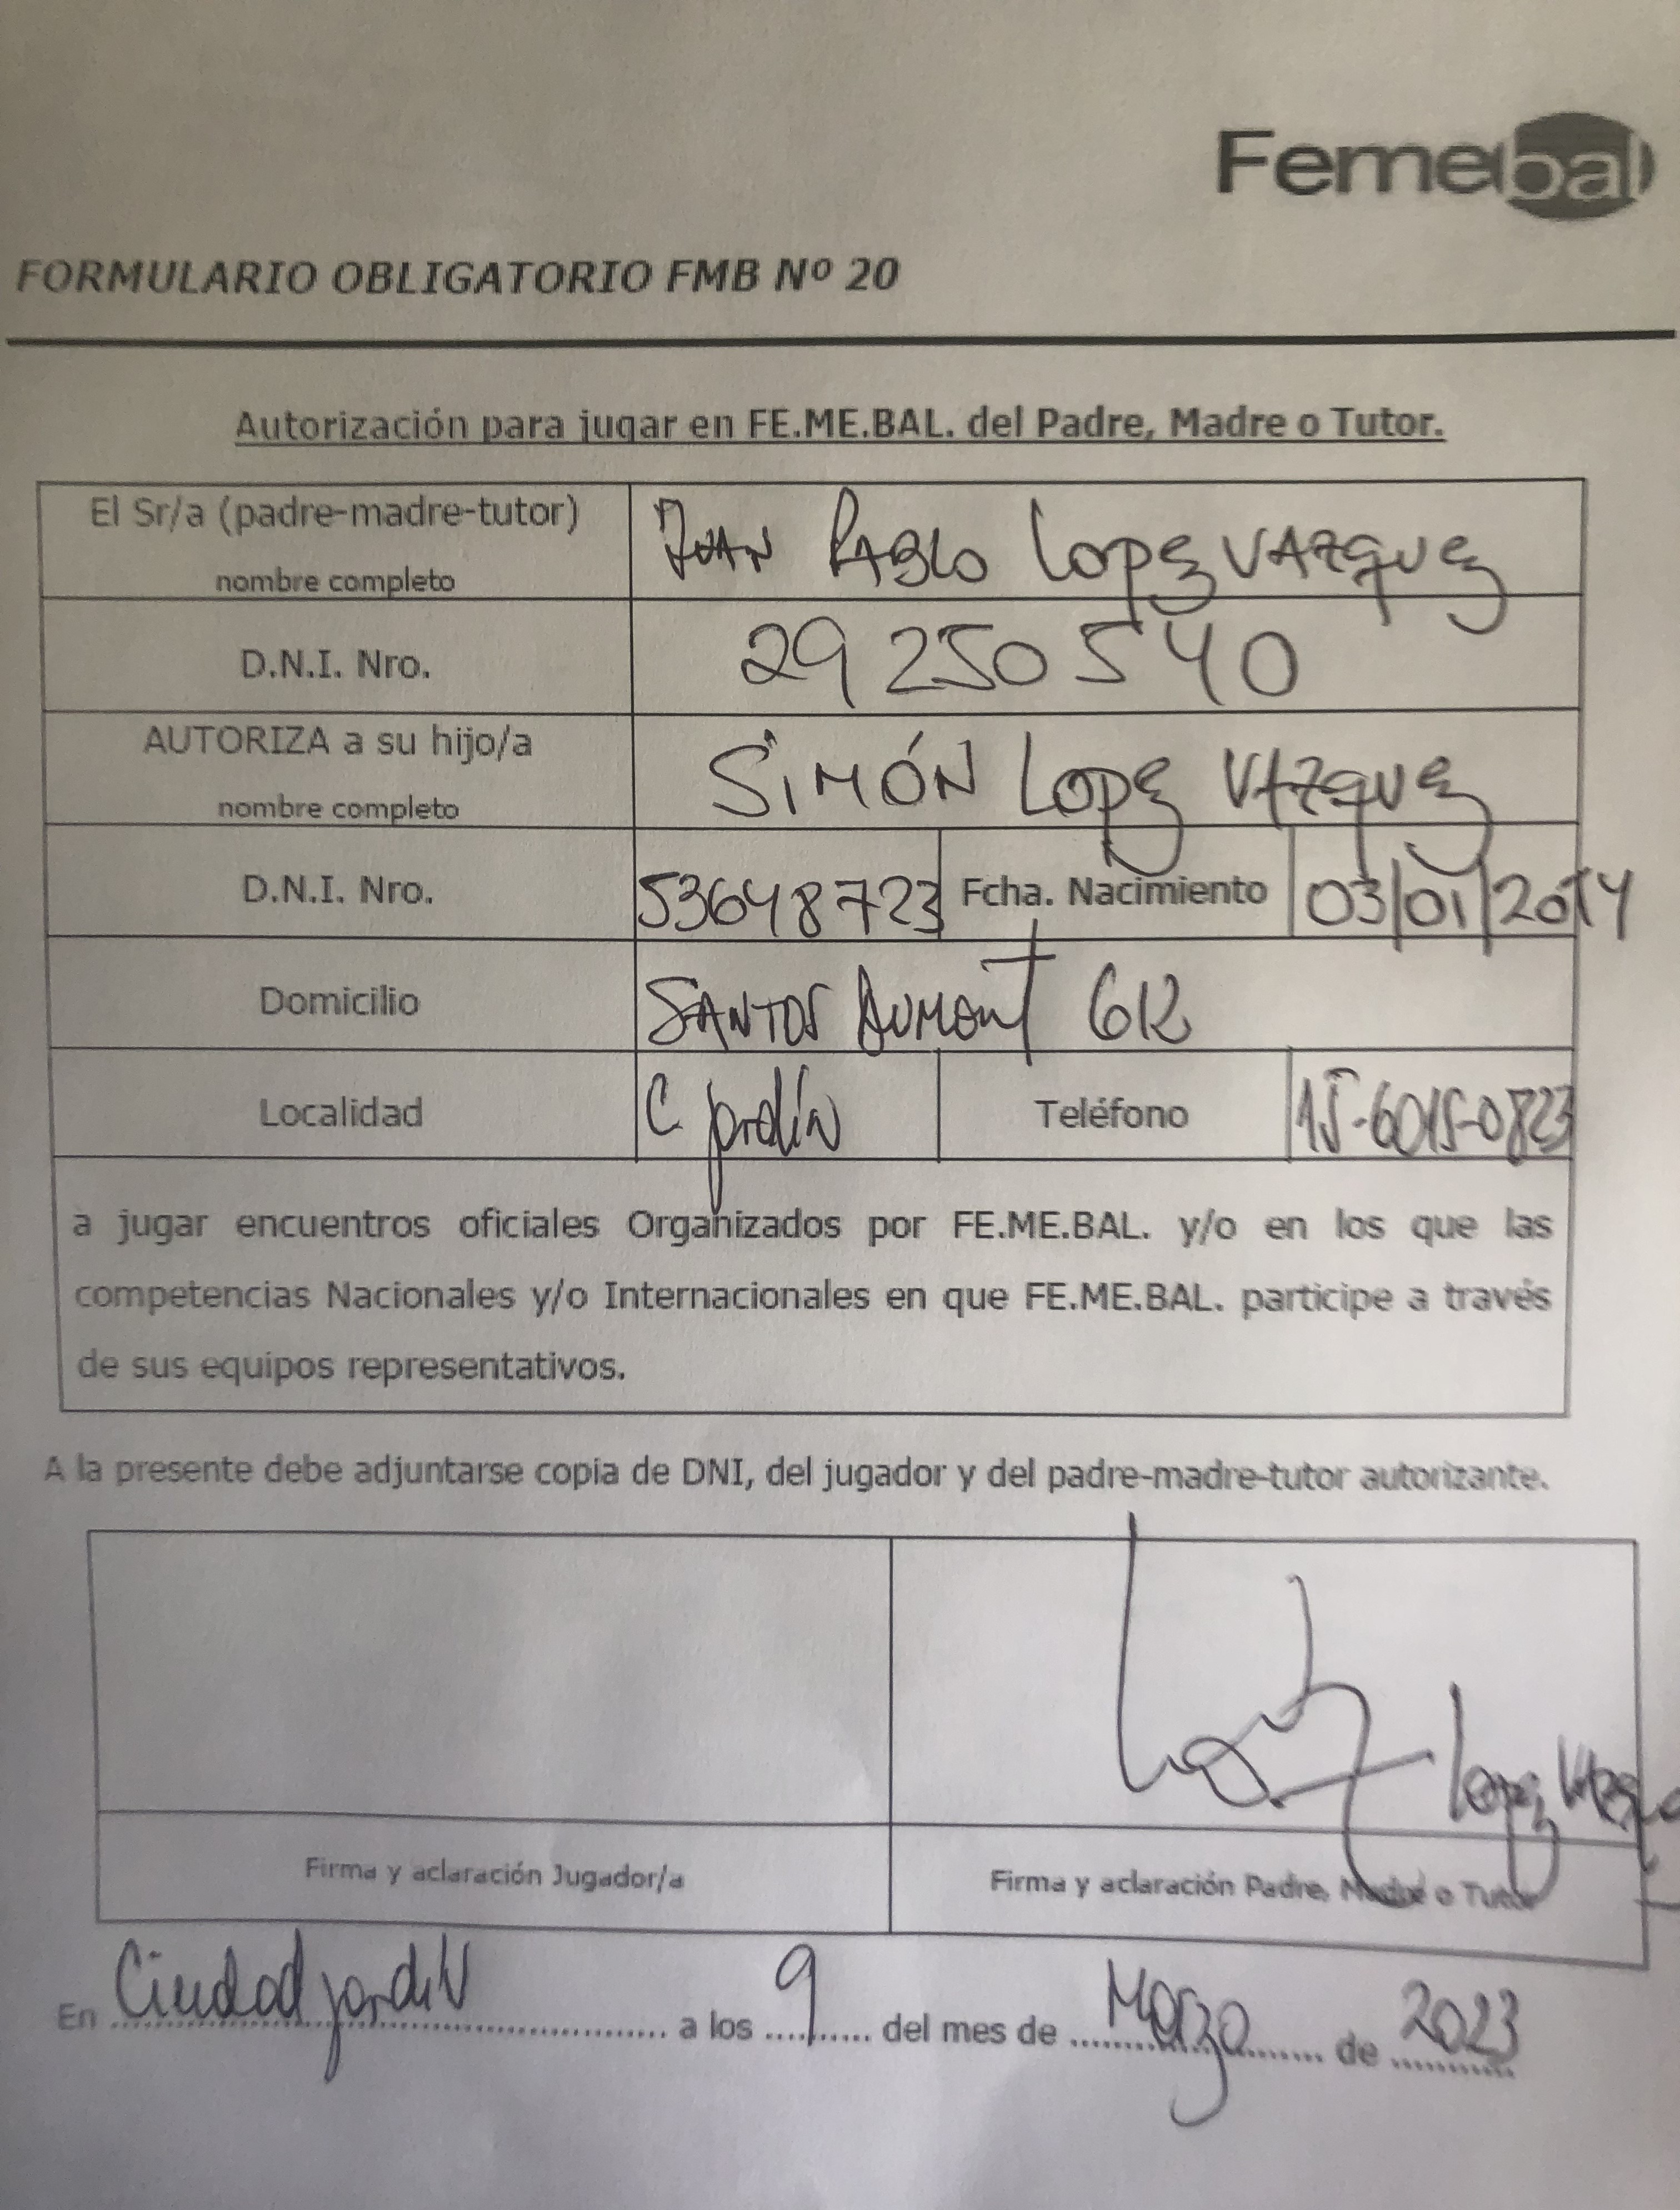 Femebal
FORMULARIO OBLIGATORIO FMB Nº 20
Autorización para jugar en FE.ME.BAL. del Padre, Madre o Tutor.
El Sr/a (padre-madre-tutor) nombre completo JUAN PABLO LOPEZ VAZQUEZ
D.N.I. Nro. 29 250 540
AUTORIZA a su hijo/a nombre completo SIMÓN LOPEZ VAZQUEZ
D.N.I. Nro. 53648723 Fcha. Nacimiento 03/01/2014
Domicilio SANTOS DUMONT 612
Localidad C jardín Teléfono 15-6015-0823
a jugar encuentros oficiales Organizados por FE.ME.BAL. y/o en los que las
competencias Nacionales y/o Internacionales en que FE.ME.BAL. participe a través
de sus equipos representativos.
A la presente debe adjuntarse copia de DNI, del jugador y del padre-madre-tutor autorizante.
Lopez
Firma y aclaración Jugador/a Firma y aclaración Padre, Madre o Tutor
En Ciudad jardín a los 9 del mes de Marzo de 2023